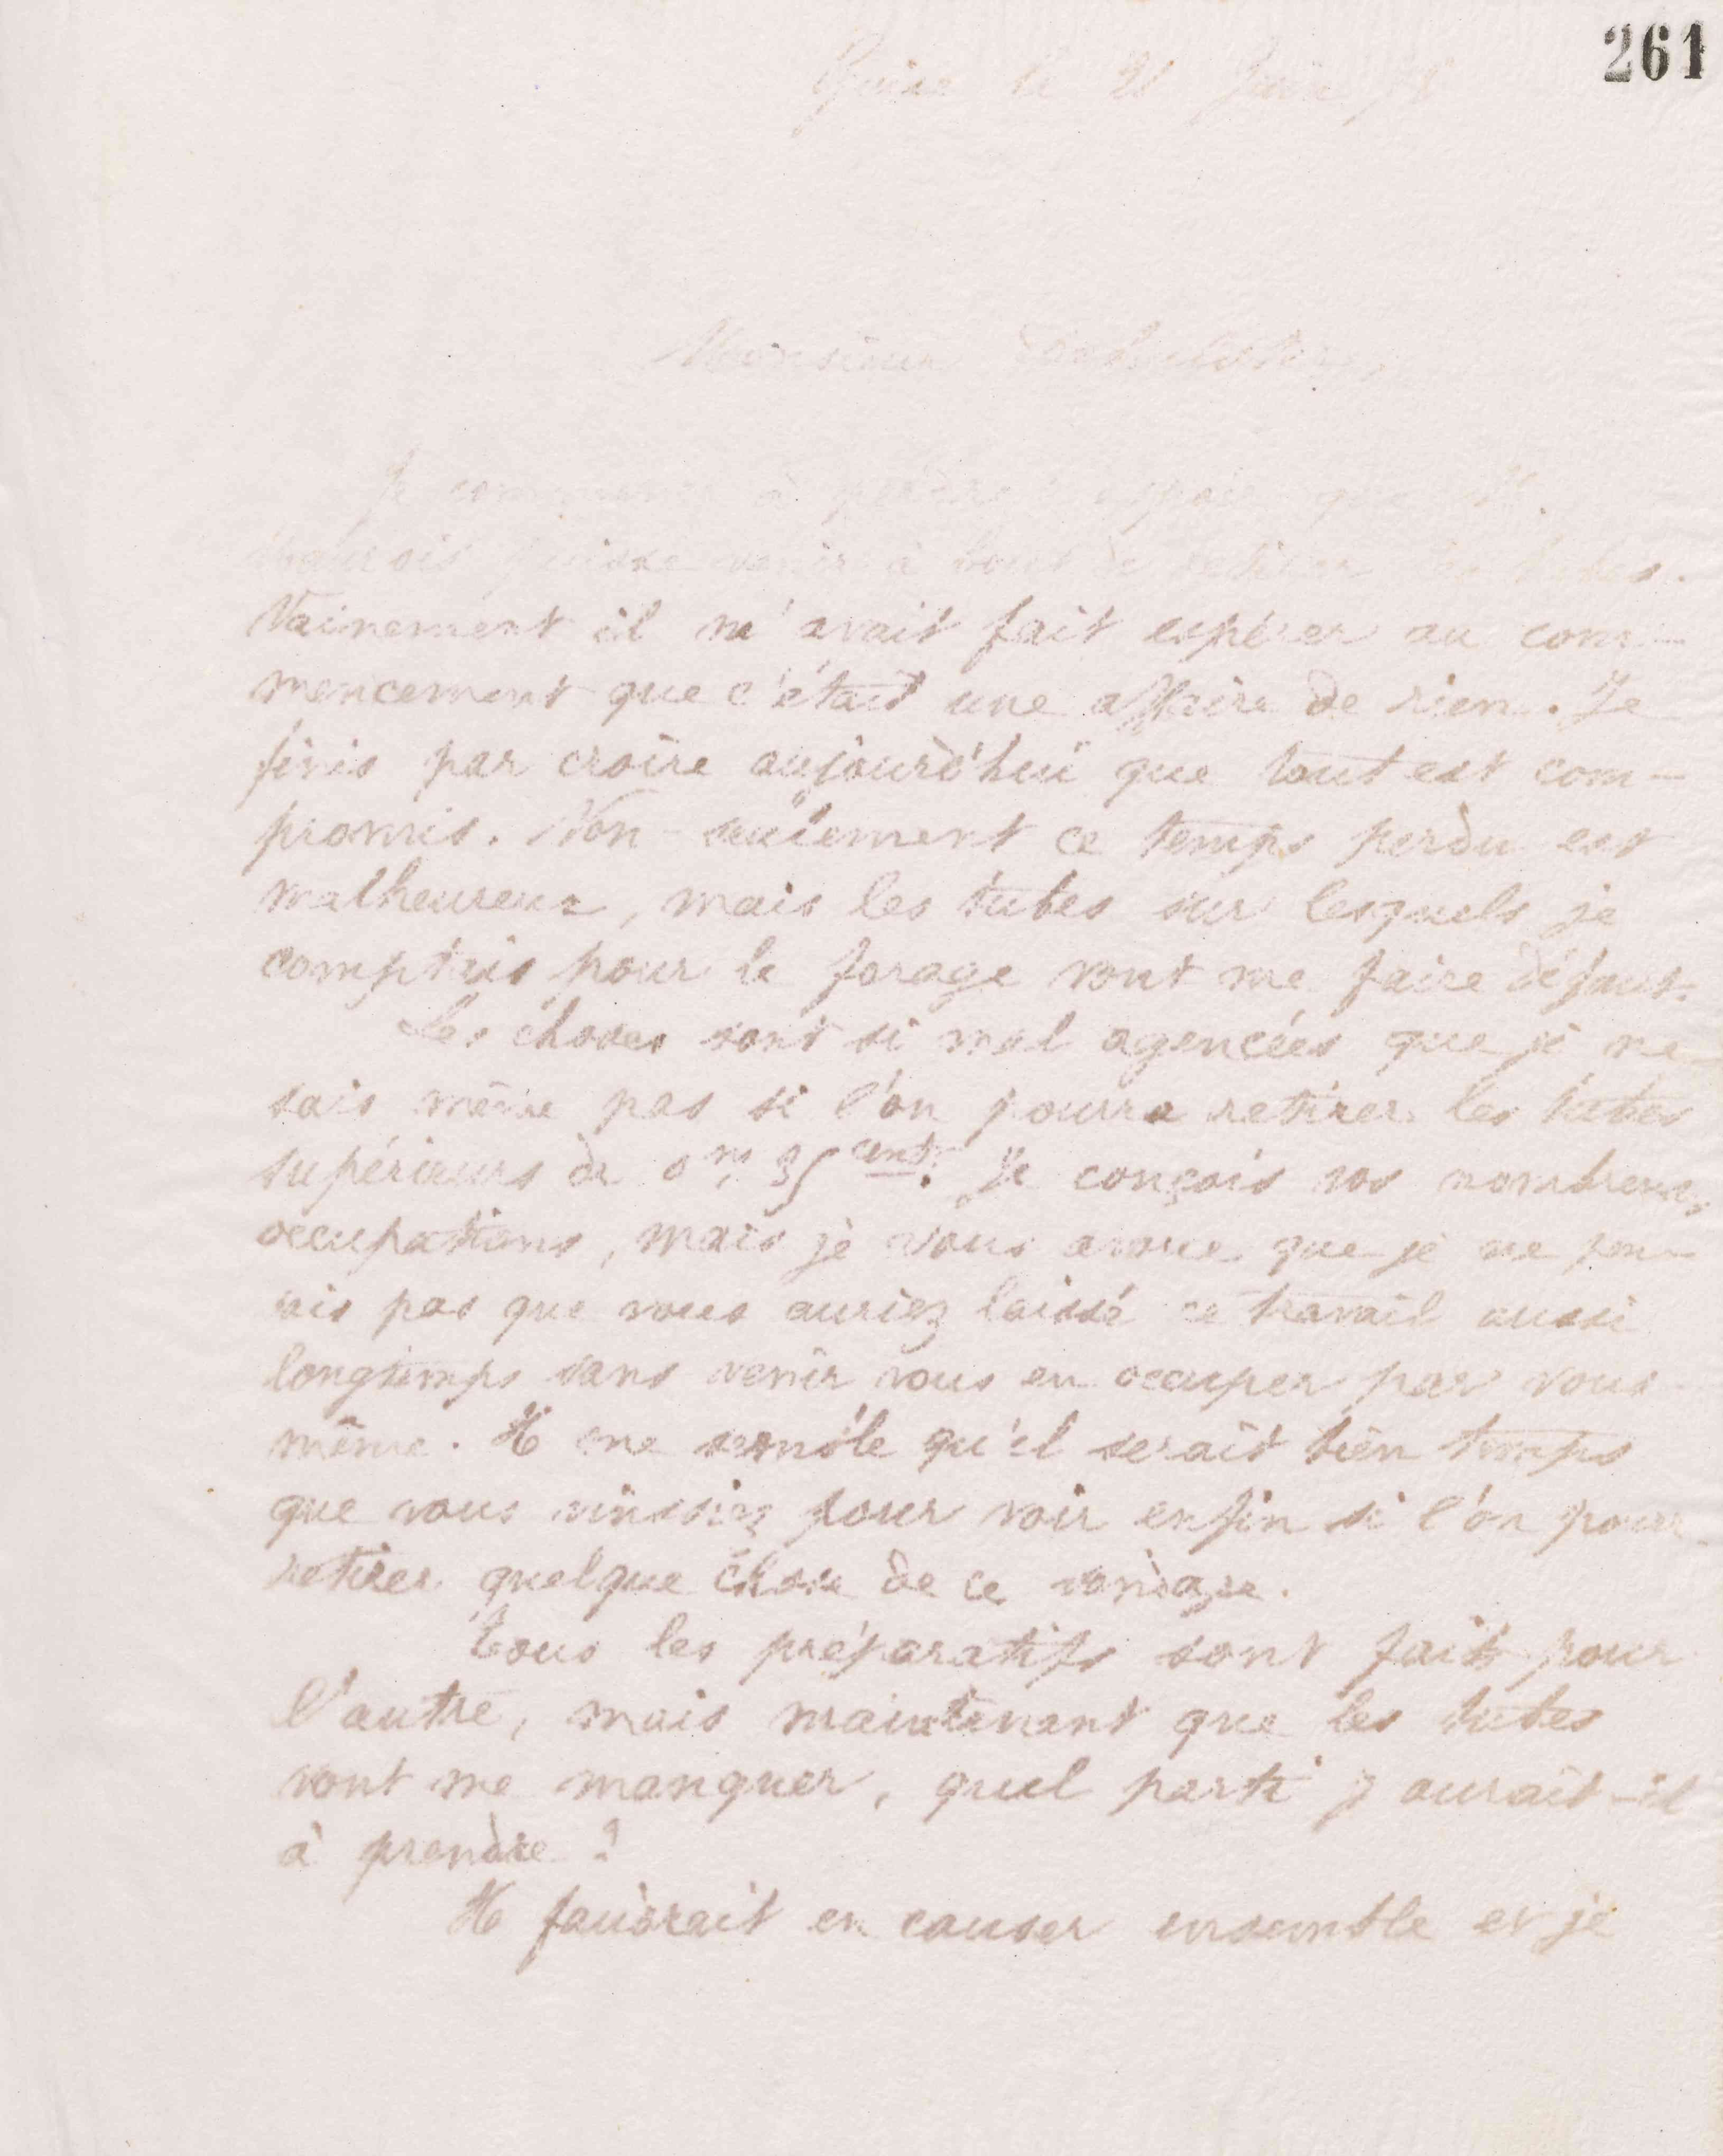 261
Guise le 21 Juin
Monsieur
Je commence à perdre espoir que M.
puisse venir à bout de retirer les tubes.
Vainement il m'avait fait espérer au com-
mencement que c'était une affaire de rien. Je
finis par croire aujourd'hui que tout est com-
promis. Non-seulement ce temps perdu est
malheureux, mais les tubes sur lesquels je
comptais pour le forage vont me faire défaut.
Les choses sont si mal agencées que je ne
sais même pas si l'on pourra retirer les tubes
supérieurs de 0m, 35 cent. Je conçois vos nombreuses
occupations, mais je vous avoue que je ne pen-
sais pas que vous auriez laissé ce travail aussi
longtemps sans venir vous en occuper par vous
même. Il me semble qu'il serait bien temps
que vous vinssiez pour voir enfin si l'on pourra
retirer quelque chose de ce sondage.
Tous les préparatifs sont faits pour
l'autre, mais maintenant que les tubes
vont me manquer, quel parti y aurait-il
à prendre ?
Il faudrait en causer ensemble et je